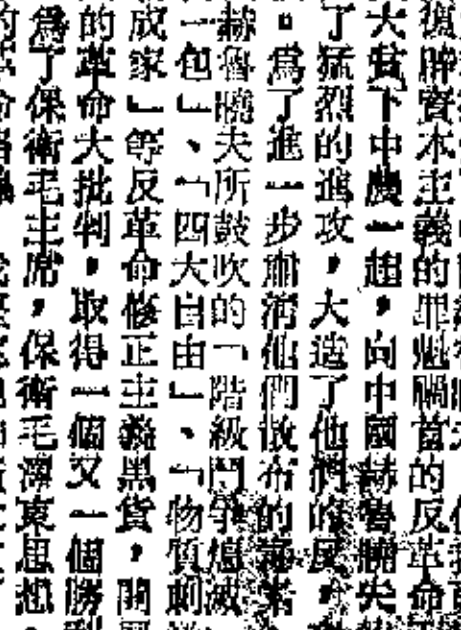 復辟資本主義的罪魁禍首的反革命
大貧下中農一起，向中國赫魯曉夫
了猛烈的進攻，大造了他們的反，
。爲了進一步肅清他們散布的毒素
赫魯曉夫所鼓吹的「階級鬥爭熄滅
一包」、「四大自由」、「物質刺
成家」等反革命修正主義黑貨，開
的革命大批判，取得一個又一個勝
爲了保衛毛主席，保衛毛澤東思想